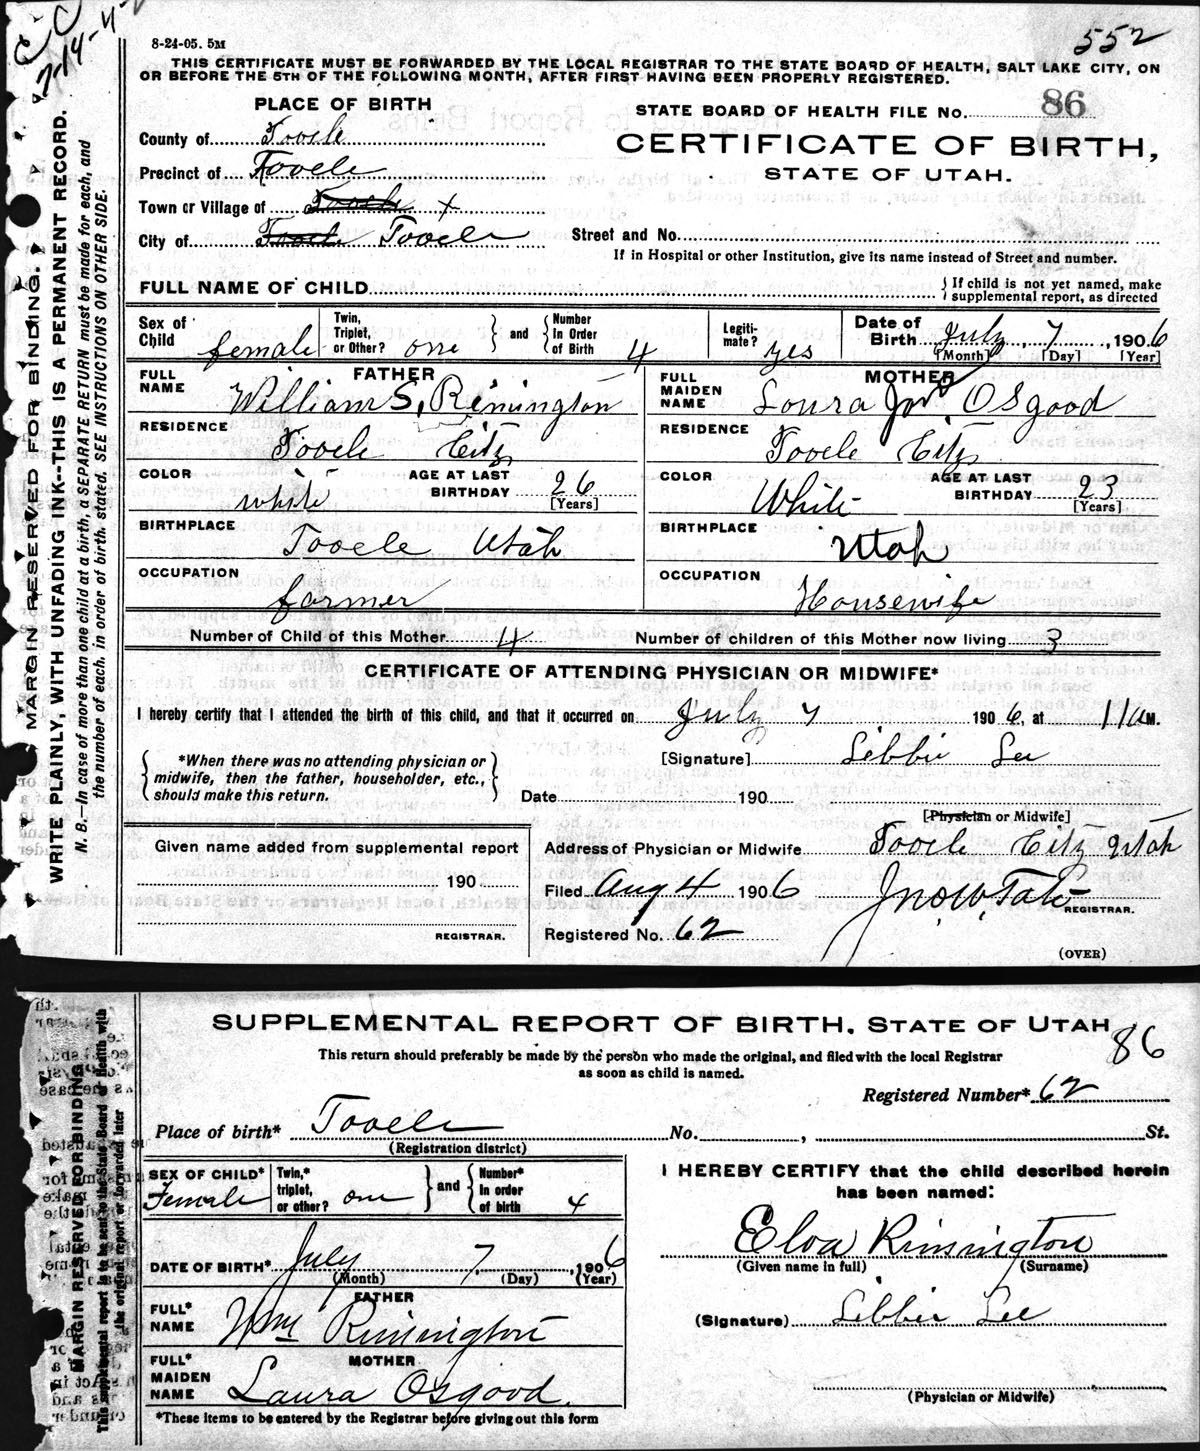 552
E C
7-14-4-2
8-24-05. 5M
THIS CERTIFICATE MUST BE FORWARDED BY THE LOCAL REGISTRAR TO THE STATE BOARD OF HEALTH, SALT LAKE CITY, ON
OR BEFORE THE 5TH OF THE FOLLOWING MONTH, AFTER FIRST HAVING BEEN PROPERLY REGISTERED.
MARGIN RESERVED FOR BINDING.
WRITE PLAINLY, WITH UNFADING INK--THIS IS A PERMANENT RECORD.
N. B.—In case of more than one child at a birth, a SEPARATE RETURN must be made for each, and
the number of each, in order of birth, stated. SEE INSTRUCTIONS ON OTHER SIDE.
PLACE OF BIRTH
STATE BOARD OF HEALTH FILE NO. 86
County of Tooele
CERTIFICATE OF BIRTH,
Precinct of Tooele
STATE OF UTAH.
Town or Village of Tooele x
City of Tooele Tooele
Street and No.
If in Hospital or other Institution, give its name instead of Street and number.
FULL NAME OF CHILD
{If child is not yet named, make
supplemental report, as directed
Sex of Child female
Twin, Triplet, or Other? one } and { Number In Order of Birth 4
Legiti-mate? yes
Date of Birth July 7, 1906
[Month] [Day] [Year]
FATHER
FULL NAME William S. Rimington
RESIDENCE Tooele City
COLOR white
AGE AT LAST BIRTHDAY 26 [Years]
BIRTHPLACE Tooele Utah
OCCUPATION farmer
MOTHER
FULL MAIDEN NAME Loura Jane Osgood
RESIDENCE Tooele City
COLOR White
AGE AT LAST BIRTHDAY 23 [Years]
BIRTHPLACE Utah
OCCUPATION Housewife
Number of Child of this Mother 4 Number of children of this Mother now living 3
CERTIFICATE OF ATTENDING PHYSICIAN OR MIDWIFE*
I hereby certify that I attended the birth of this child, and that it occurred on July 7 1906, at 11 AM.
{*When there was no attending physician or
midwife, then the father, householder, etc.,
should make this return.}
[Signature] Libbie Lee
Date 190
[Physician or Midwife]
Given name added from supplemental report
190
REGISTRAR.
Address of Physician or Midwife Tooele City Utah
Filed Aug 4 1906 Jno W. Tate
REGISTRAR.
Registered No. 62
(OVER)
SUPPLEMENTAL REPORT OF BIRTH. STATE OF UTAH
86
This return should preferably be made by the person who made the original, and filed with the local Registrar
as soon as child is named.
MARGIN RESERVED FOR BINDING
This supplemental report is to be sent to the State Board of Health with
the original report or forwarded later
Registered Number* 62
Place of birth* Tooele No. , St.
(Registration district)
SEX OF CHILD* Female
Twin,* triplet, or other? one } and { Number* in order of birth 4
DATE OF BIRTH* July 7, 1906
(Month) (Day) (Year)
FATHER
FULL* NAME Wm Rimington
MOTHER
FULL* MAIDEN NAME Laura Osgood.
*These items to be entered by the Registrar before giving out this form
I HEREBY CERTIFY that the child described herein
has been named:
Elva Rimington
(Given name in full) (Surname)
(Signature) Libbie Lee
(Physician or Midwife)